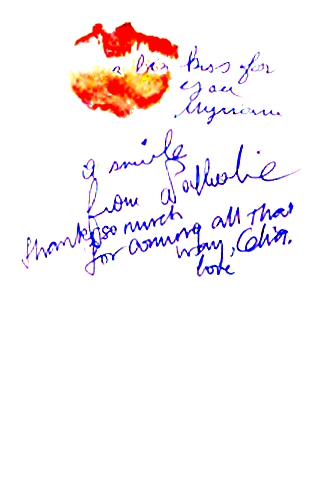 a big kiss for
you
Myriam
a smile
from Nathalie
thanks so much
for coming all that
way, Celia.
love